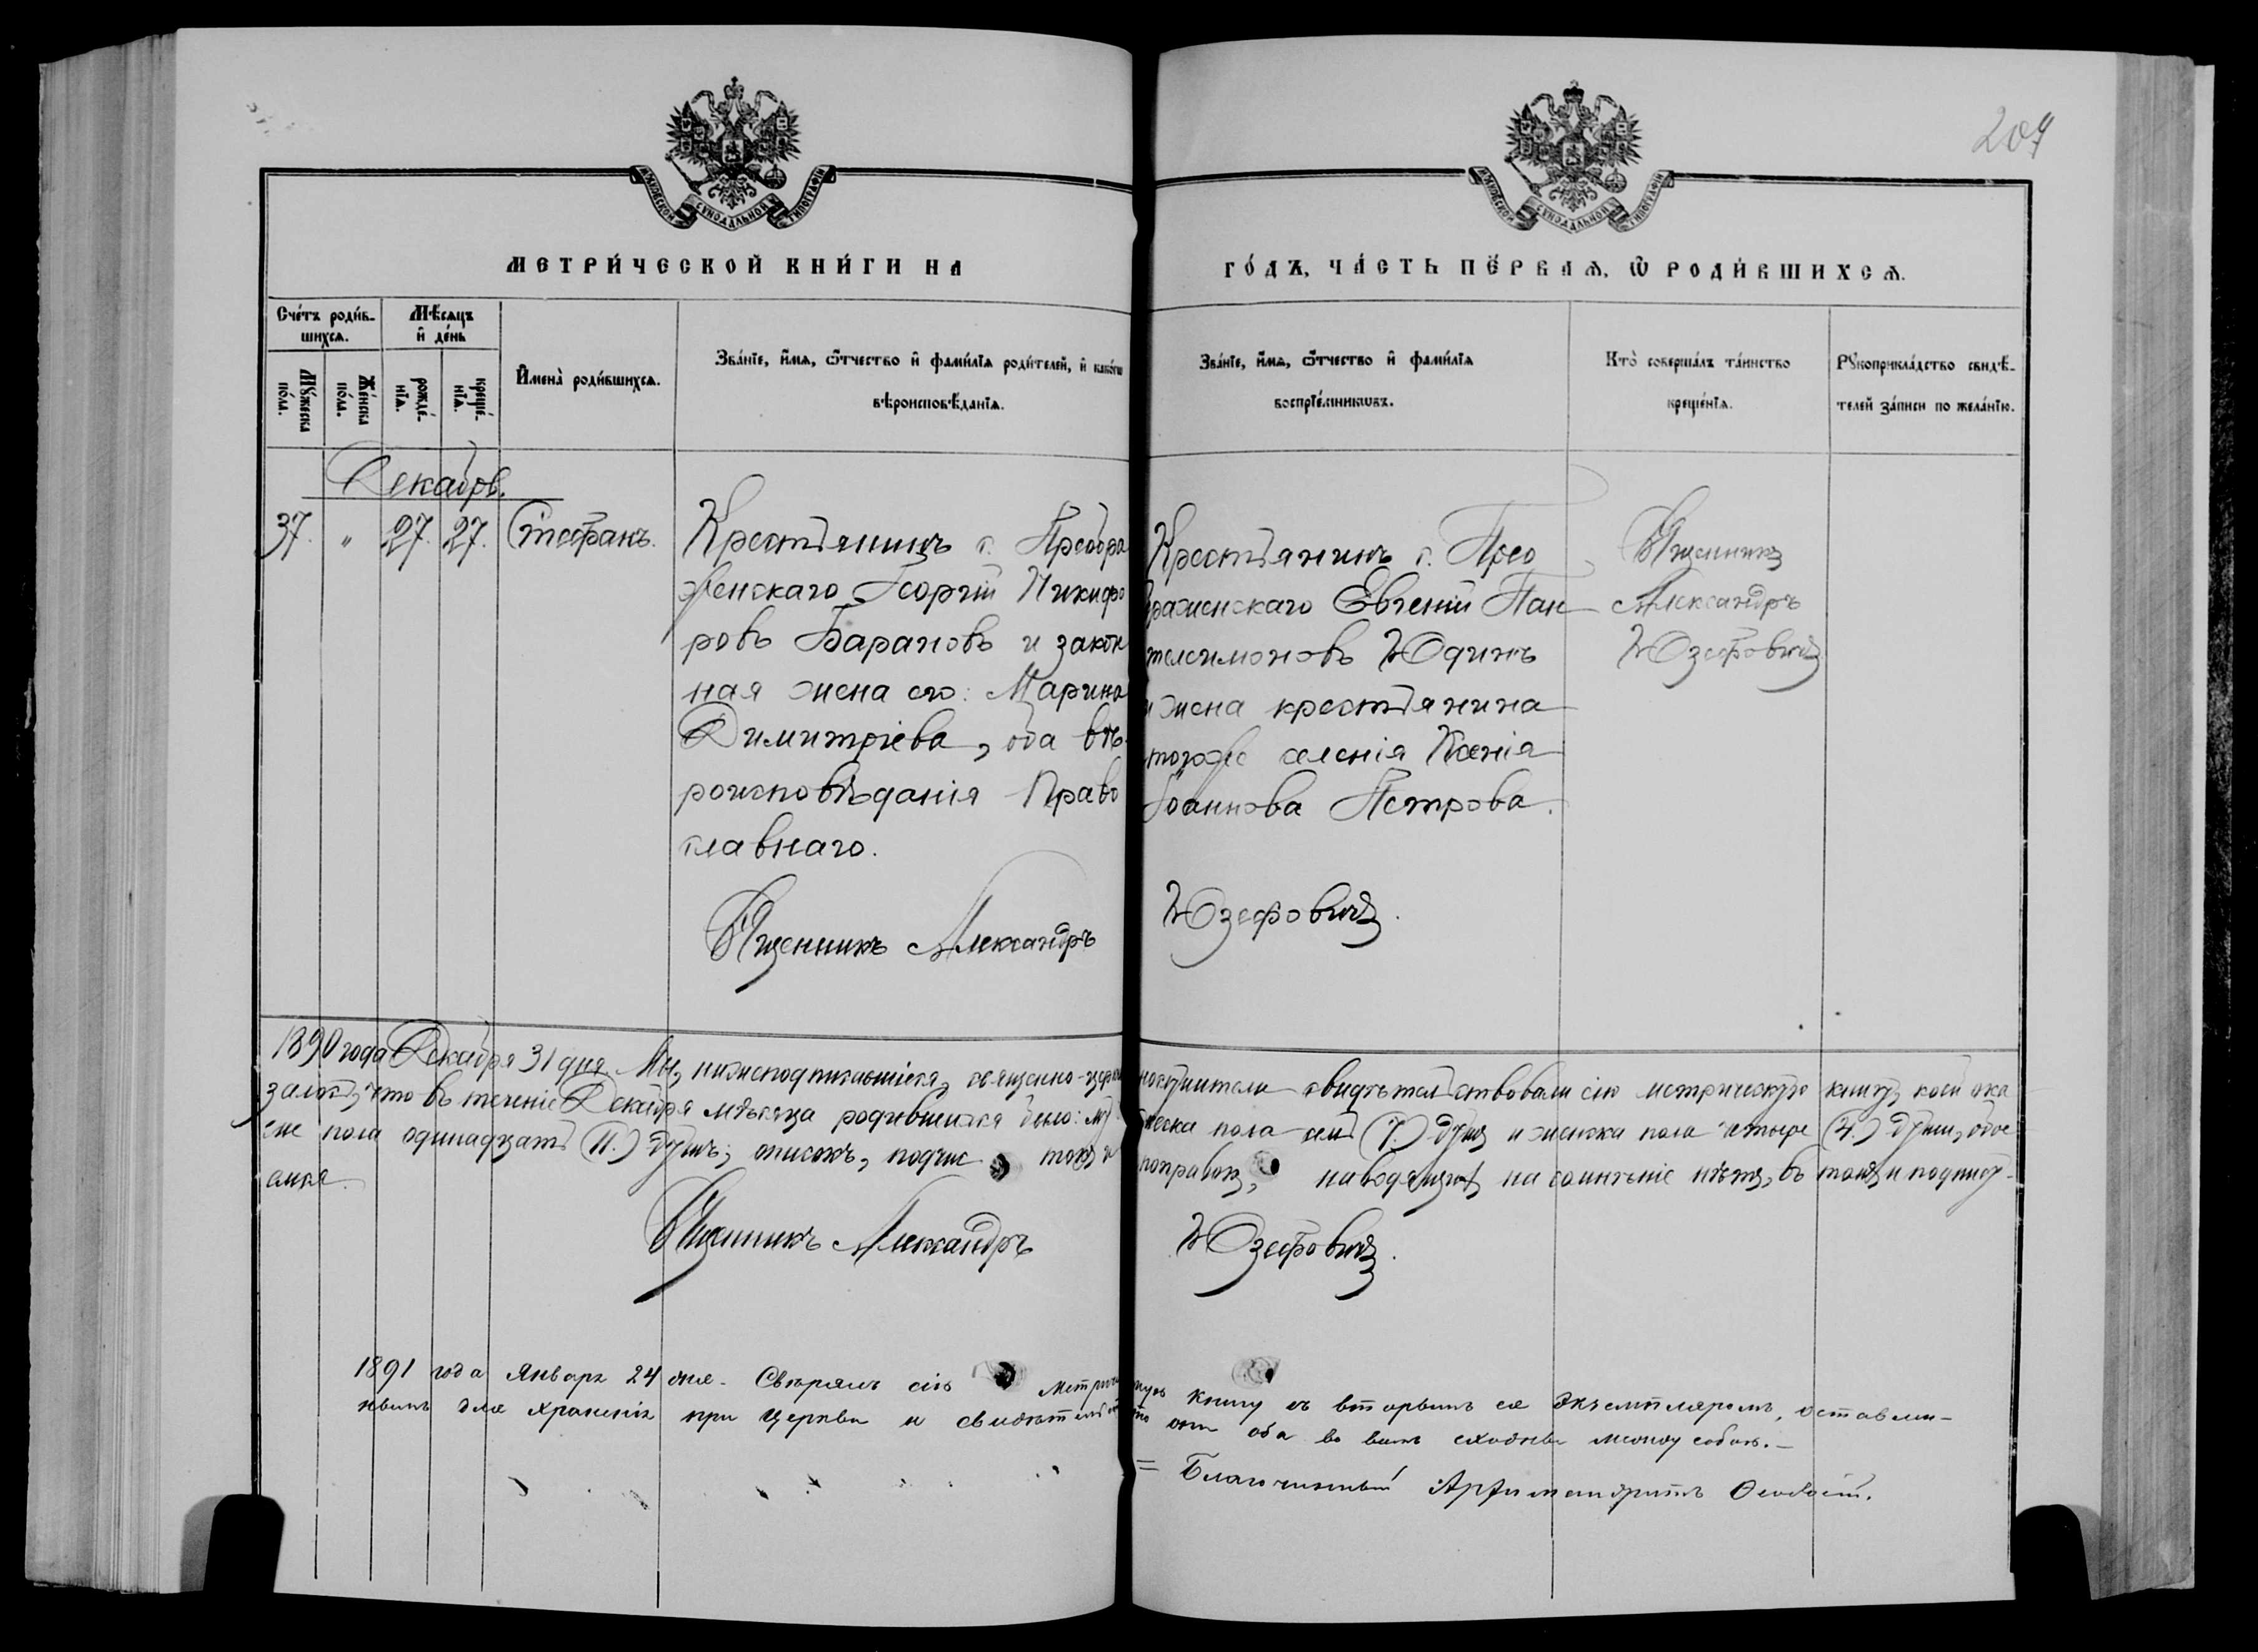 209
МОСКОВСКОЙ СѴНОДАЛЬНОЙ ТИПОГРАФІИ
МОСКОВСКОЙ СѴНОДАЛЬНОЙ ТИПОГРАФІИ
МЕТРИ́ЧЕСКОЙ КНИ́ГИ НА
ГО́ДЪ, ЧА́СТЬ ПЕ́РВАѦ, Ѿ РОДИ́ВШИХСѦ.
Сче́тъ роди́в-
шихсѧ.
Мѣ́сѧцъ
и҆ де́нь
Мꙋ́жеска
по́ла.
Же́нска
по́ла.
рожде́-
нїѧ.
креще́-
нїѧ.
И҆мена̀ роди́вшихсѧ.
Зва́нїе, и҆́мѧ, ѻ҆́тчество и҆ фами́лїѧ роди́телей, и҆ како́гѡ
вѣроисповѣ́данїѧ.
Зва́нїе, и҆́мѧ, ѻ҆́тчество и҆ фами́лїѧ
воспрїе́мникѡвъ.
Кто̀ соверша́лъ та́инство
креще́нїѧ.
Рꙋкоприкла́дство свидѣ́-
телей за́писи по жела́нїю.
Декабрь.
37. " 27. 27. Стефанъ.
Крестьянинъ с. Преобра
женскаго Георгій Никифо
ровъ Барановъ и закон
ная жена его: Марина
Димитріева, оба вѣ-
роисповѣданія Право
славнаго.
Крестьянинъ с. Прео
браженскаго Евгеній Пан
телеимоновъ Юдинъ
и жена крестьянина
тогоже селенія Ксенія
Іоаннова Петрова.
Священникъ
Александръ
Юзефовичъ
Священникъ Александръ Юзефовичъ.
1890 года Декабря 31 дня. Мы, нижеподписавшіеся, священно-церковнослужители свидѣтельствовали сію метрическую книгу, коей ока
залось, что въ теченіе Декабря мѣсяца родившихся было: мужеска пола семь (7.) душъ и женска пола четыре (4.) души, обое
его пола одинадцать (11.) душъ; описокъ, подчистокъ и поправокъ, наводящихъ на сомнѣніе нѣтъ, въ томъ и подпису-
емся.
Священникъ Александръ Юзефовичъ.
1891 года Января 24 дня. Свѣрялъ сію Метрическую книгу съ вторымъ ея экземпляромъ, оставлен-
нымъ для храненія при церкви и свидѣтельствую что они оба во всемъ сходны между собою. —
= Благочинный Архимандритъ Ѳеодосій.